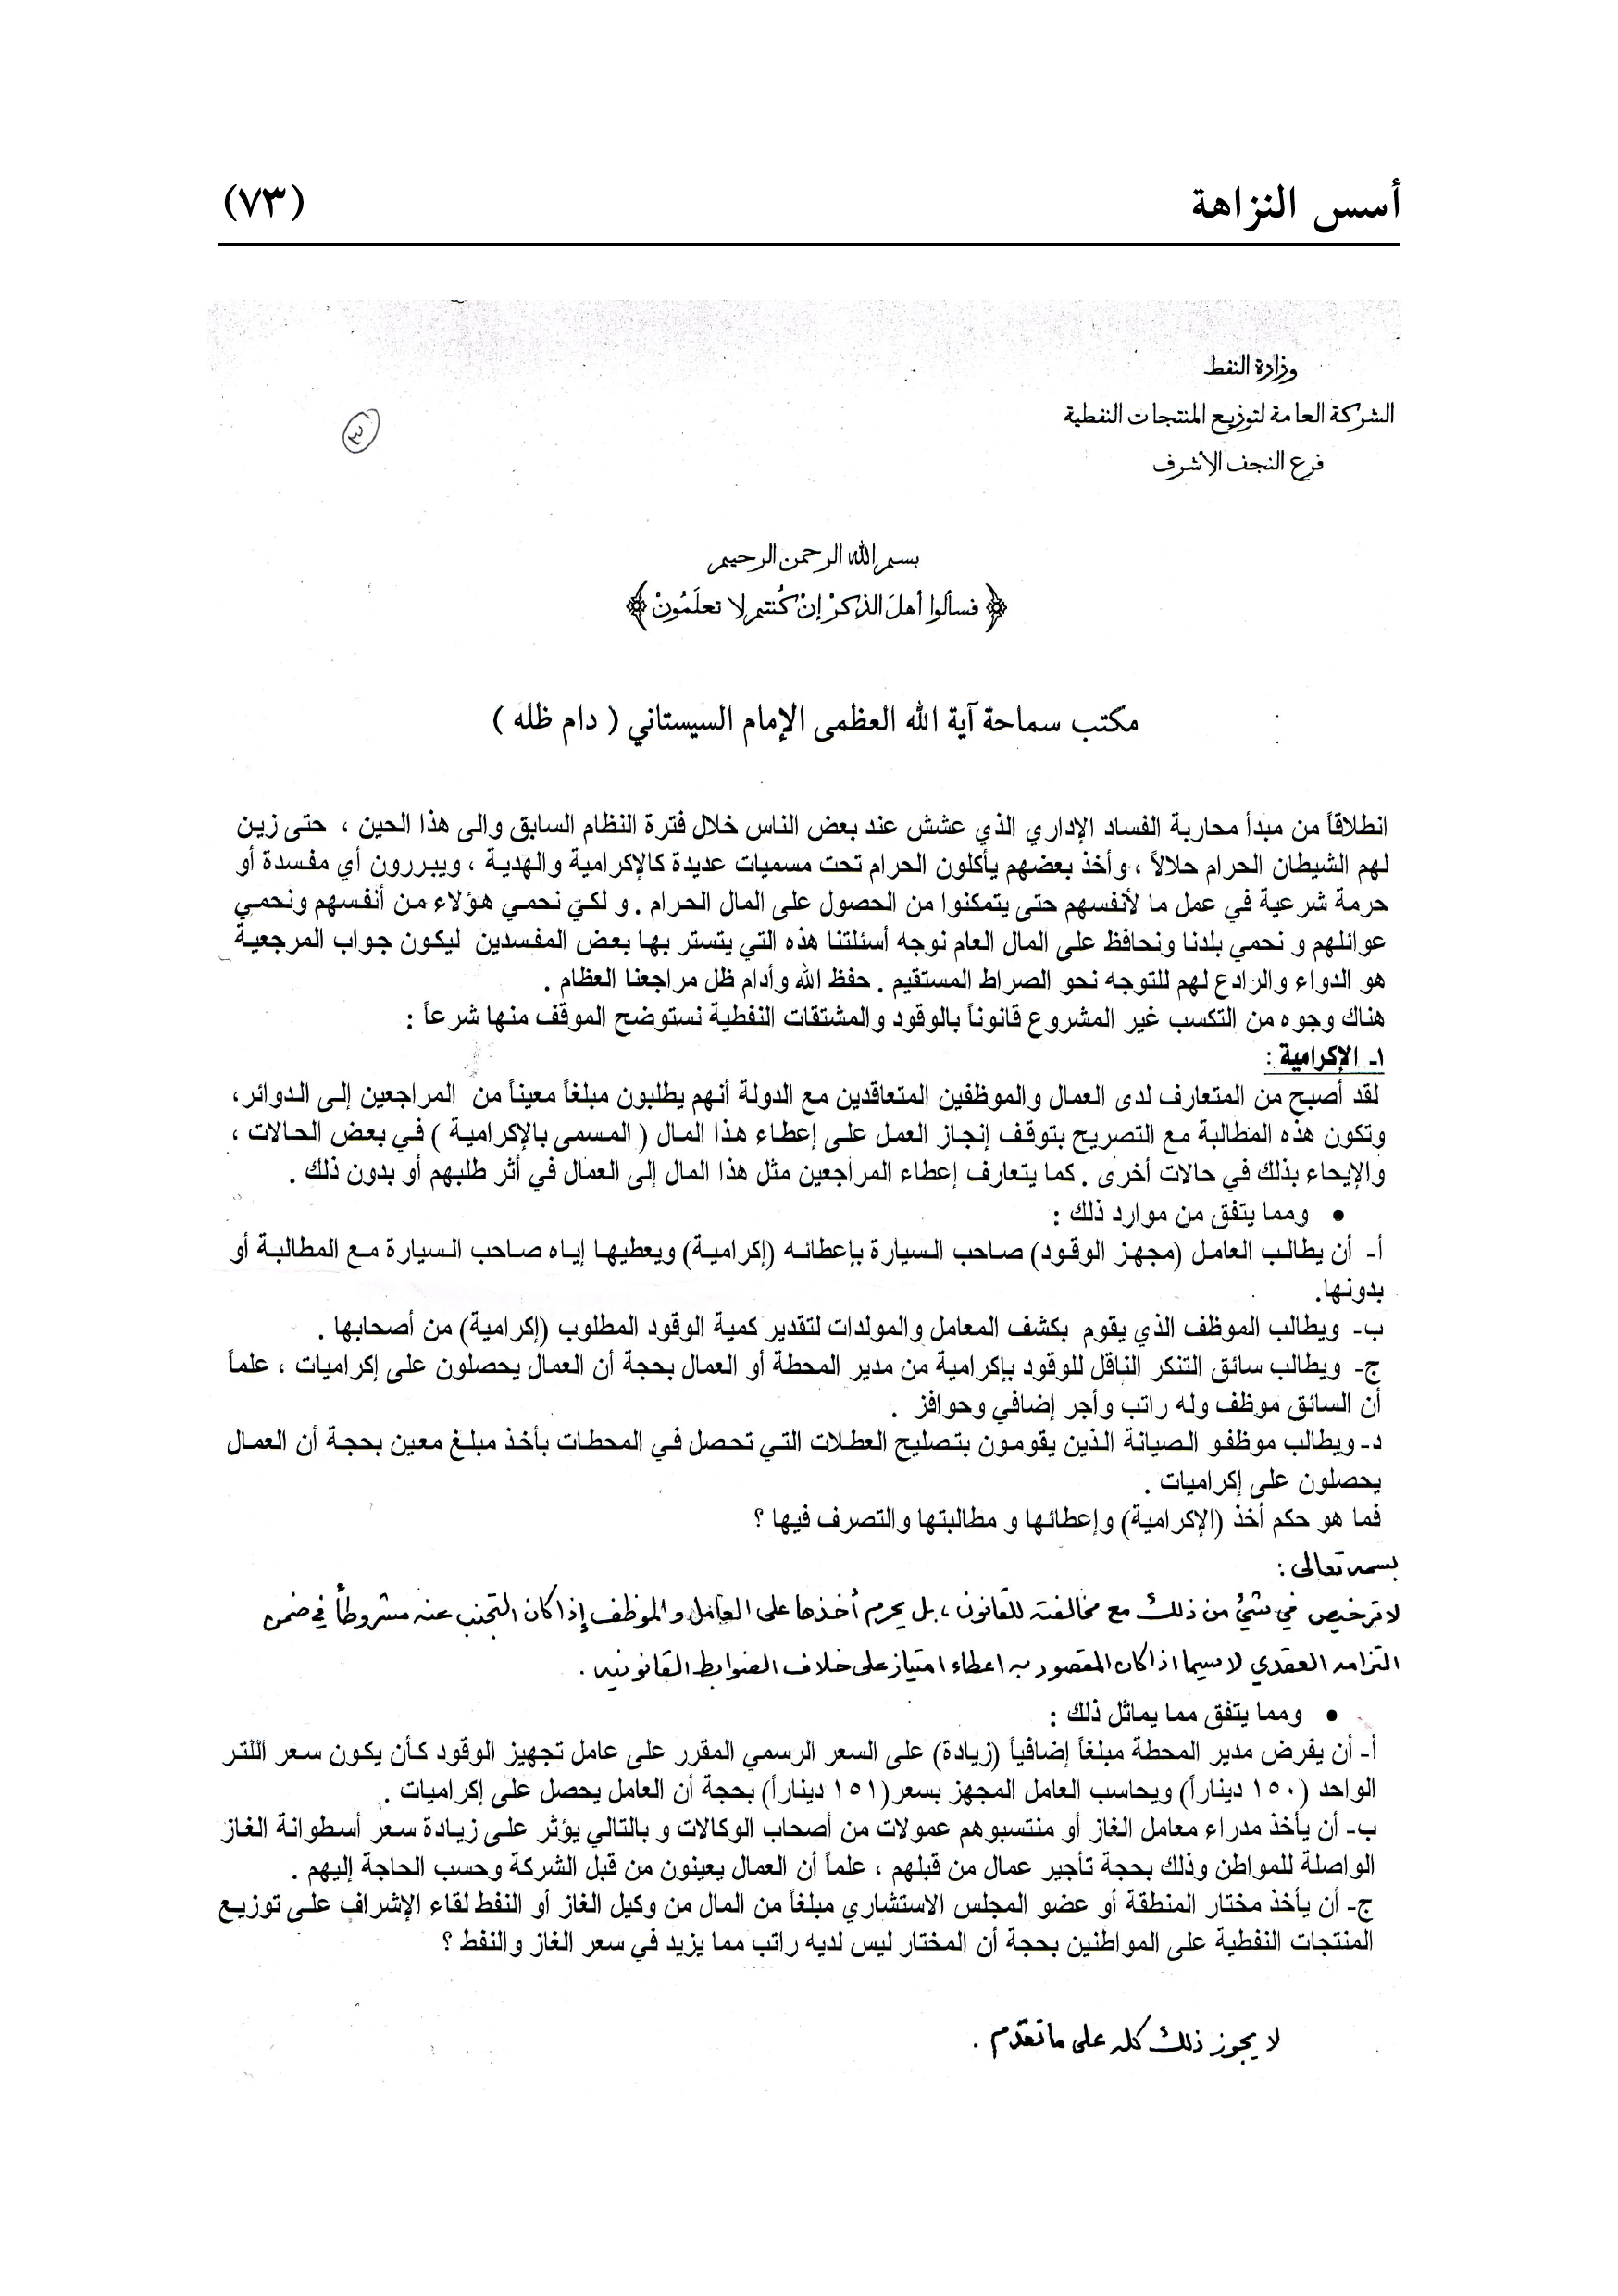 أسس النزاهة (٧٣)
وزارة النفط
الشركة العامة لتوزيع المنتجات النفطية
فرع النجف الأشرف
بسم الله الرحمن الرحيم
﴿ فسألوا أهلَ الذكرْ إنْ كُنتم لا تعلَمُونْ ﴾
مكتب سماحة آية الله العظمى الإمام السيستاني ( دام ظله )
انطلاقاً من مبدأ محاربة الفساد الإداري الذي عشش عند بعض الناس خلال فترة النظام السابق والى هذا الحين ، حتى زين
لهم الشيطان الحرام حلالاً ، وأخذ بعضهم يأكلون الحرام تحت مسميات عديدة كالإكرامية والهدية ، ويبررون أي مفسدة أو
حرمة شرعية في عمل ما لأنفسهم حتى يتمكنوا من الحصول على المال الحرام . و لكي نحمي هؤلاء من أنفسهم ونحمي
عوائلهم و نحمي بلدنا ونحافظ على المال العام نوجه أسئلتنا هذه التي يتستر بها بعض المفسدين ليكون جواب المرجعية
هو الدواء والرادع لهم للتوجه نحو الصراط المستقيم . حفظ الله وأدام ظل مراجعنا العظام .
هناك وجوه من التكسب غير المشروع قانوناً بالوقود والمشتقات النفطية نستوضح الموقف منها شرعاً :
١ـ الإكرامية :
لقد أصبح من المتعارف لدى العمال والموظفين المتعاقدين مع الدولة أنهم يطلبون مبلغاً معيناً من المراجعين إلى الدوائر،
وتكون هذه المطالبة مع التصريح بتوقف إنجاز العمل على إعطاء هذا المال ( المسمى بالإكرامية ) في بعض الحالات ،
والإيحاء بذلك في حالات أخرى . كما يتعارف إعطاء المراجعين مثل هذا المال إلى العمال في أثر طلبهم أو بدون ذلك .
• ومما يتفق من موارد ذلك :
أ- أن يطالب العامل (مجهز الوقود) صاحب السيارة بإعطائه (إكرامية) ويعطيها إياه صاحب السيارة مع المطالبة أو
بدونها.
ب- ويطالب الموظف الذي يقوم بكشف المعامل والمولدات لتقدير كمية الوقود المطلوب (إكرامية) من أصحابها .
ج- ويطالب سائق التنكر الناقل للوقود بإكرامية من مدير المحطة أو العمال بحجة أن العمال يحصلون على إكراميات ، علماً
أن السائق موظف وله راتب وأجر إضافي وحوافز .
د- ويطالب موظفو الصيانة الذين يقومون بتصليح العطلات التي تحصل في المحطات بأخذ مبلغ معين بحجة أن العمال
يحصلون على إكراميات .
فما هو حكم أخذ (الإكرامية) وإعطائها و مطالبتها والتصرف فيها ؟
بسمه تعالى :
لا ترخيص في شيء من ذلك مع مخالفته للقانون ، بل يحرم أخذها على العامل والموظف إذا كان التجنب عنه مشروطاً في ضمن
التزامه العقدي لا سيما اذا كان المقصود به اعطاء امتياز على خلاف الضوابط القانونيه .
• ومما يتفق مما يماثل ذلك :
أ- أن يفرض مدير المحطة مبلغاً إضافياً (زيادة) على السعر الرسمي المقرر على عامل تجهيز الوقود كأن يكون سعر اللتر
الواحد (١٥٠ ديناراً) ويحاسب العامل المجهز بسعر(١٥١ ديناراً) بحجة أن العامل يحصل على إكراميات .
ب- أن يأخذ مدراء معامل الغاز أو منتسبوهم عمولات من أصحاب الوكالات و بالتالي يؤثر على زيادة سعر أسطوانة الغاز
الواصلة للمواطن وذلك بحجة تأجير عمال من قبلهم ، علماً أن العمال يعينون من قبل الشركة وحسب الحاجة إليهم .
ج- أن يأخذ مختار المنطقة أو عضو المجلس الاستشاري مبلغاً من المال من وكيل الغاز أو النفط لقاء الإشراف على توزيع
المنتجات النفطية على المواطنين بحجة أن المختار ليس لديه راتب مما يزيد في سعر الغاز والنفط ؟
لا يجوز ذلك كله على ما تقدم .